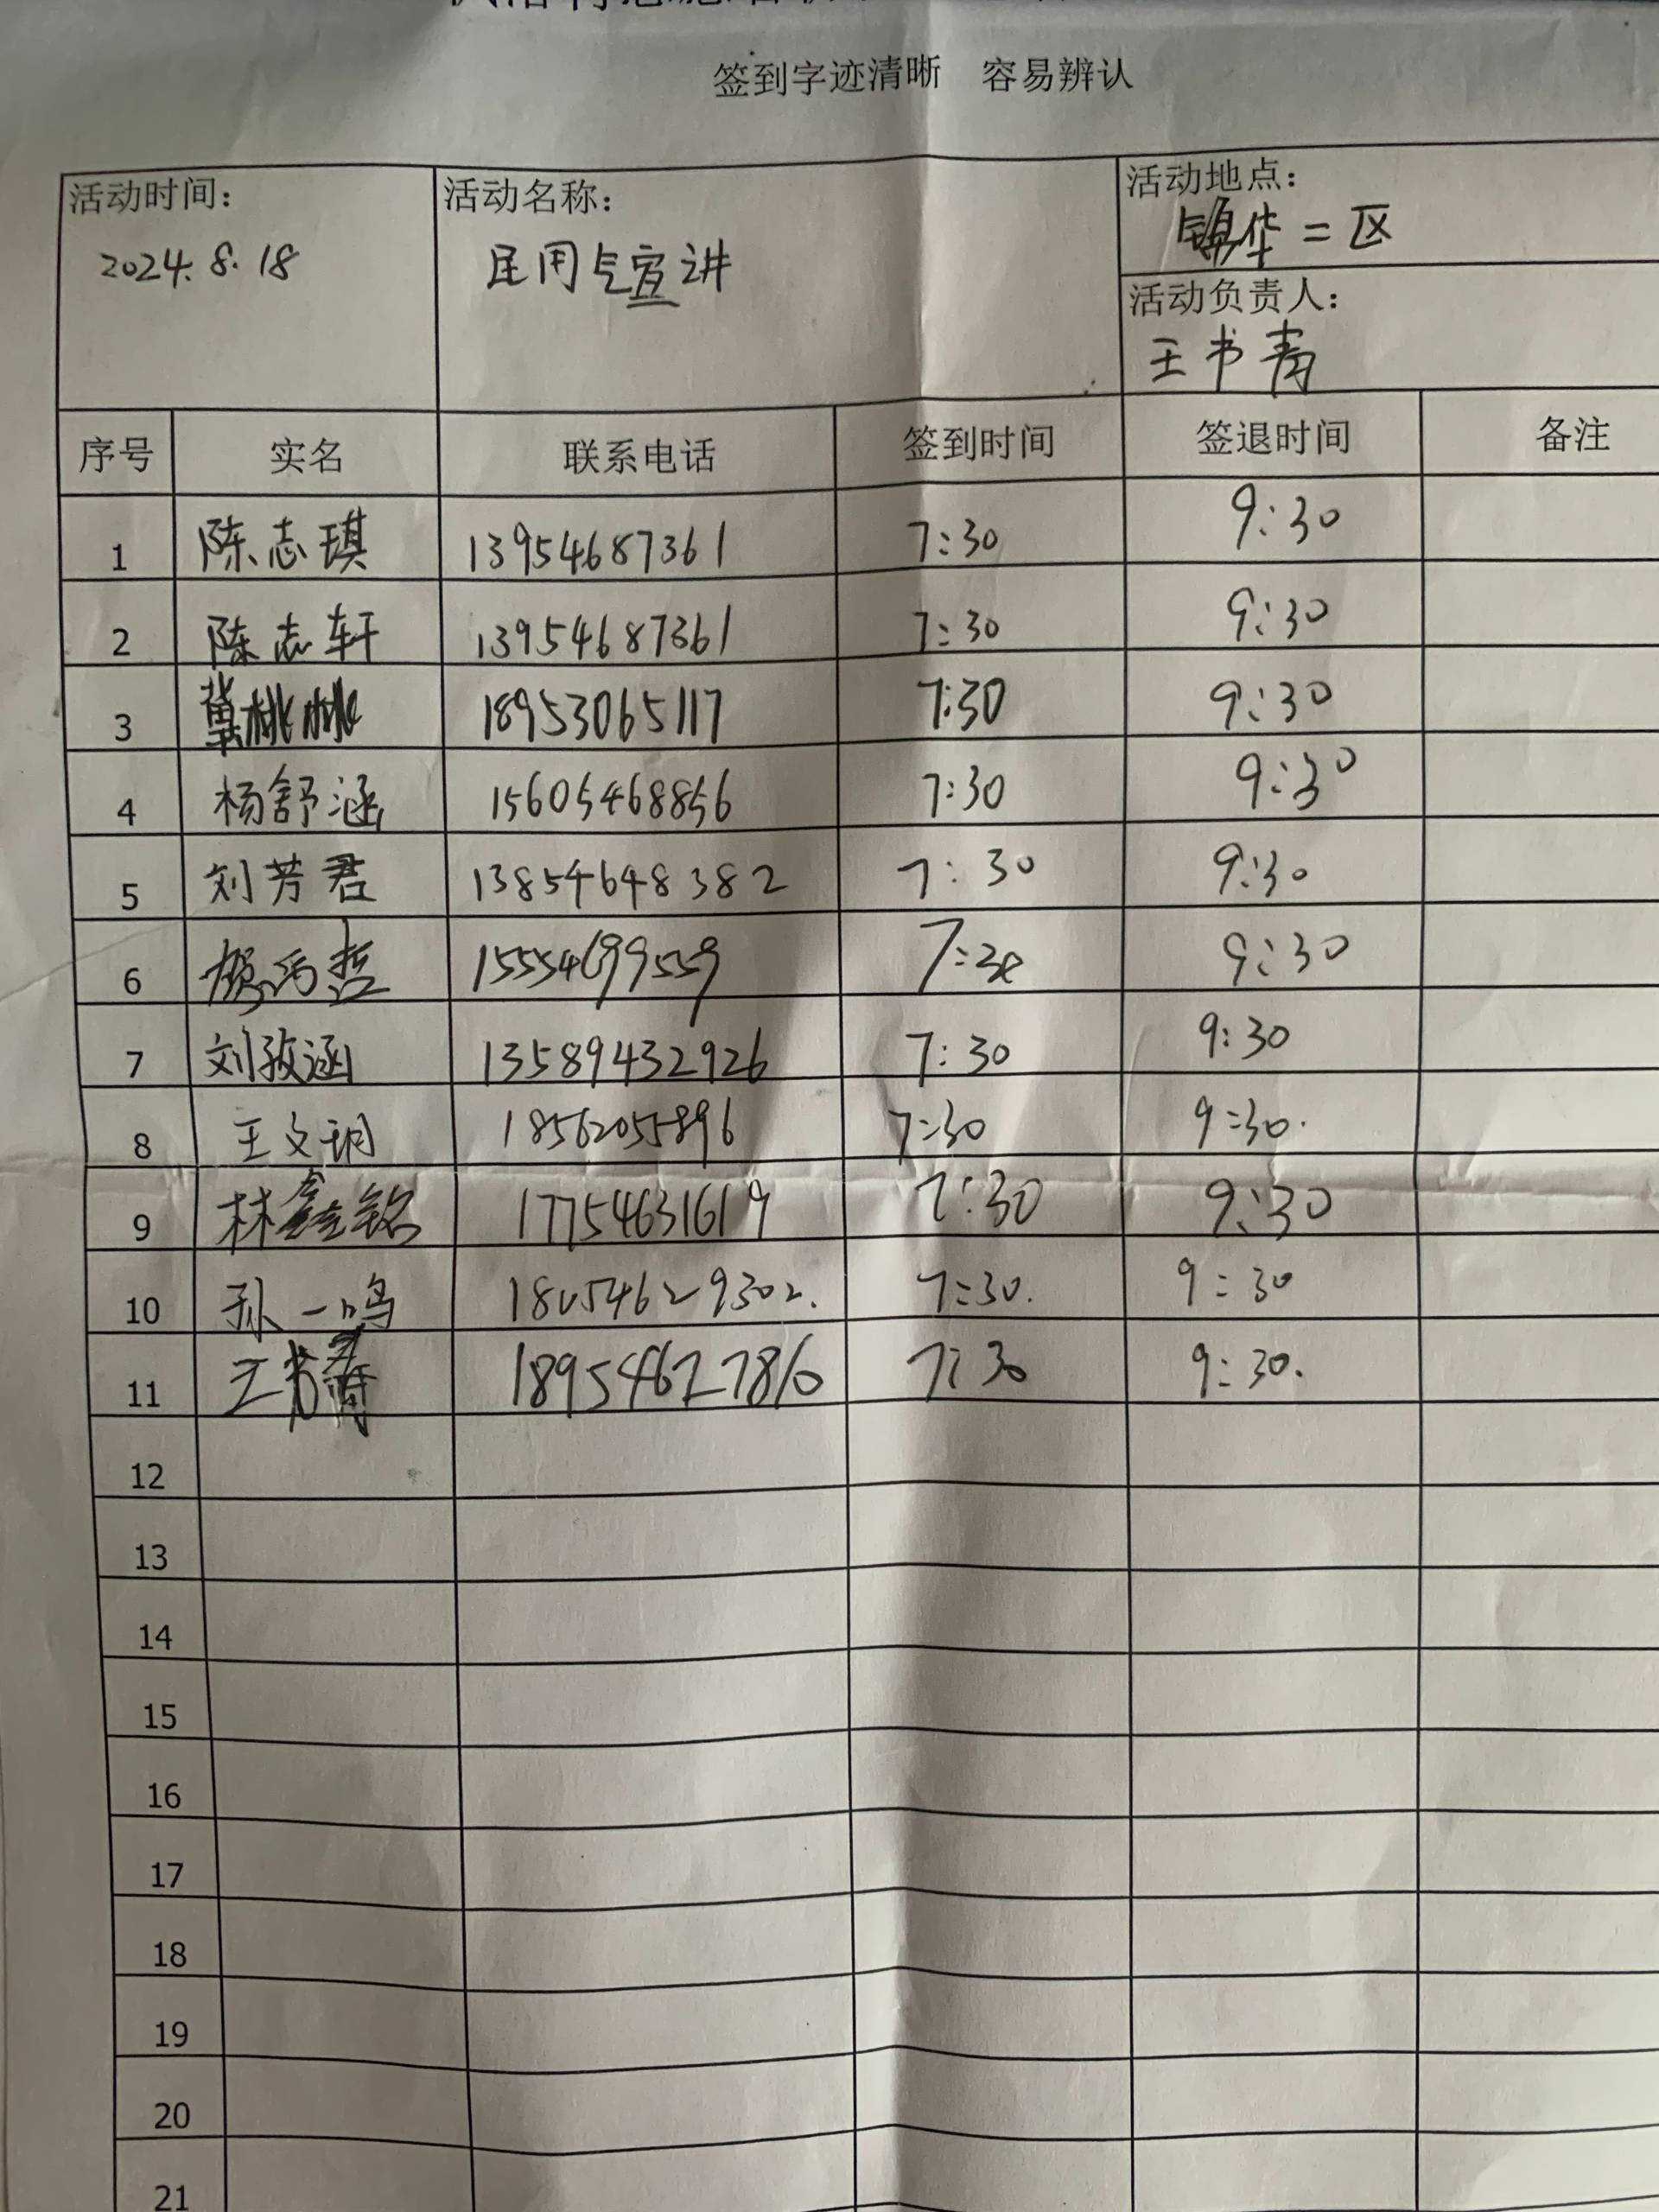 签到字迹清晰 容易辨认
活动时间： 活动名称： 活动地点：
2024.8.18 民用气宣讲 锦华二区
活动负责人：
王书青
序号 实名 联系电话 签到时间 签退时间 备注
1 陈志琪 13954687361 7:30 9:30
2 陈志轩 13954687361 7:30 9:30
3 冀桃桃 18953065117 7:30 9:30
4 杨舒涵 15605468856 7:30 9:30
5 刘芳君 13854648382 7:30 9:30
6 15554699559 7:30 9:30
7 刘孜涵 13589432926 7:30 9:30
8 王文玥 18562055896 7:30 9:30.
9 林鑫铭 17754631619 7:30 9:30
10 孙一鸣 18054629302. 7:30. 9:30
11 王书青 18954627816 7:30 9:30.
12
13
14
15
16
17
18
19
20
21